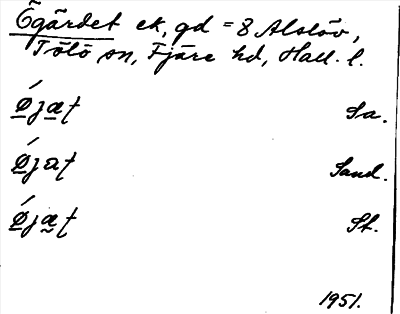 Ögärdet ek, gd = 8 Alslöv,
Tölö sn, Fjäre hd, Hall. l.
ǿjæt Sa.
ǿjat Sand.
ǿjæt St.
1951.